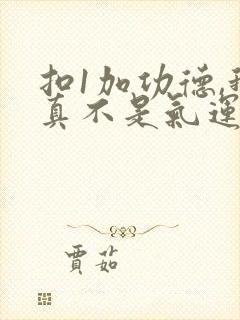 扣1加功德,
真不是氣運
賈茹